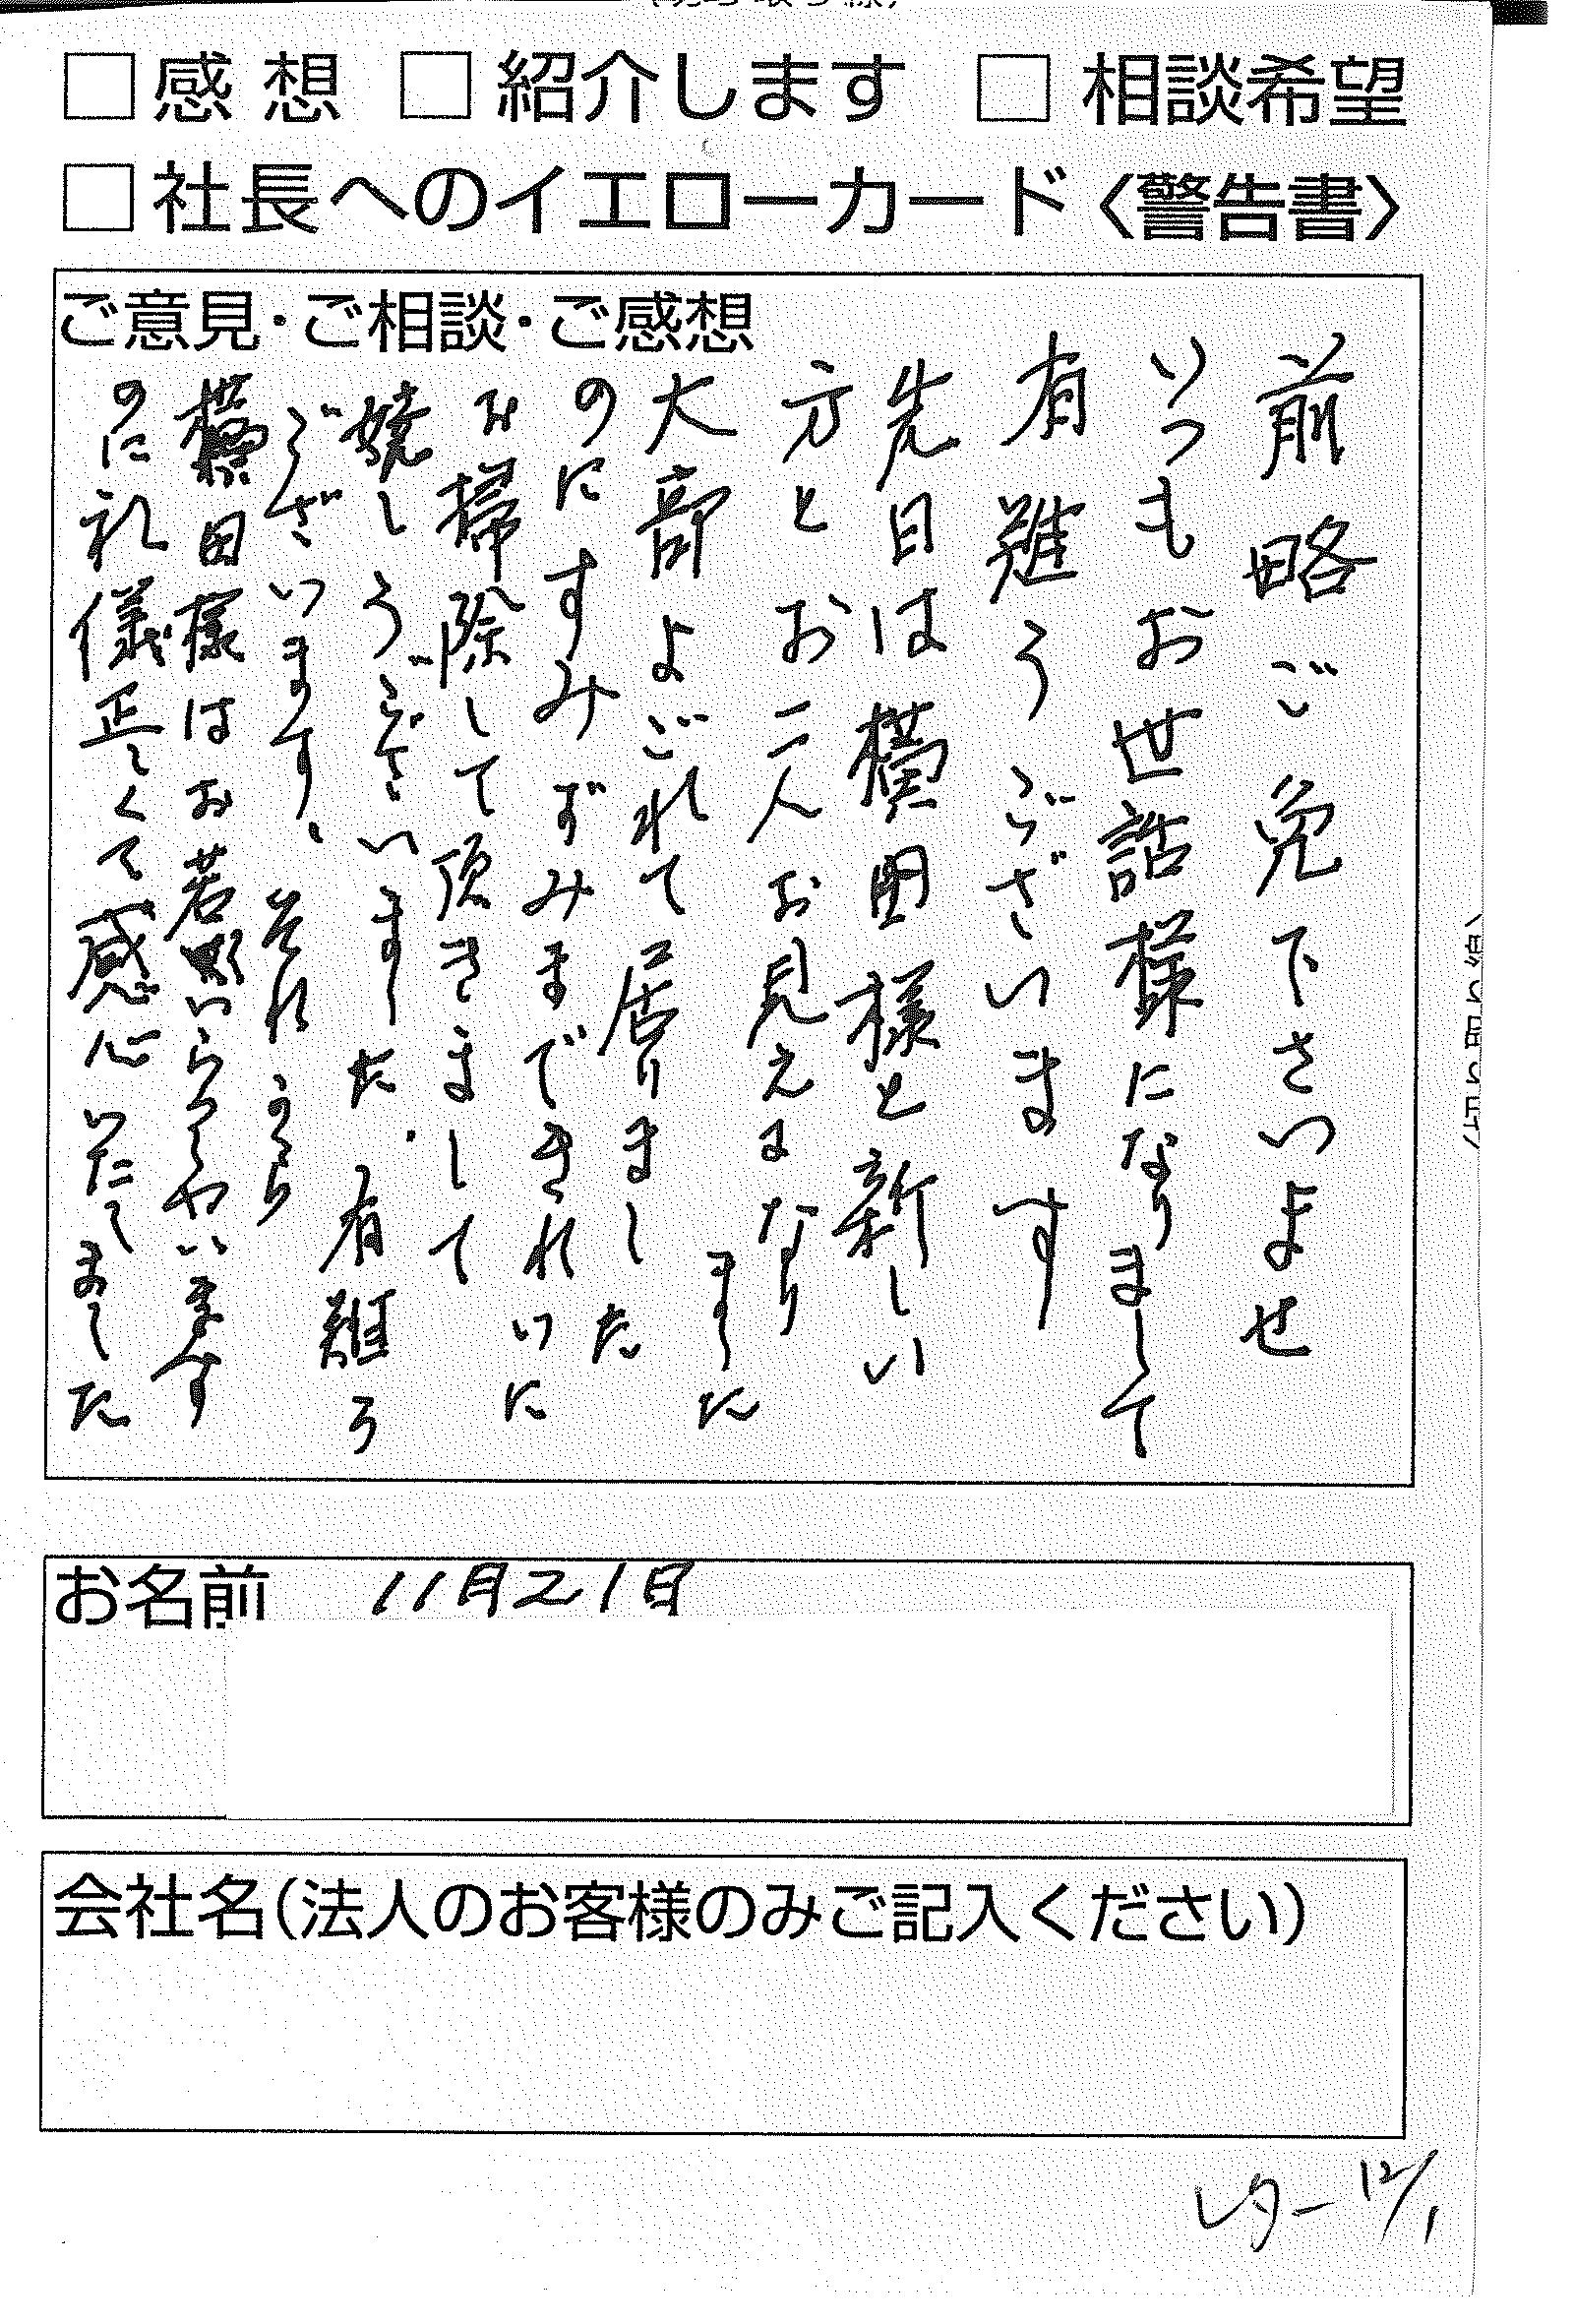 □感 想 □紹介します □相談希望
□社長へのイエローカード〈警告書〉
ご意見・ご相談・ご感想
前略ご免下さいませ
いつもお世話様になりまして
有難うございます
先日は横田様と新しい
方とお二人お見えになり
ました
大部よごれて居りました
のにすみずみまできれいに
お掃除して頂きまして
嬉しうございました。有難う
ございます、それから
横田様はお若いいらっしゃいます
のに礼儀正しくて感心いたしました
お名前 11月21日
会社名(法人のお客様のみご記入ください)
レター 12/1